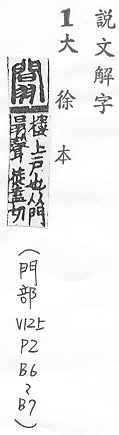 説文解字
1大徐本
闒
樓上戶也从門
𦐇聲徒盍切
(門部
V125
P2
B6
~
B7)